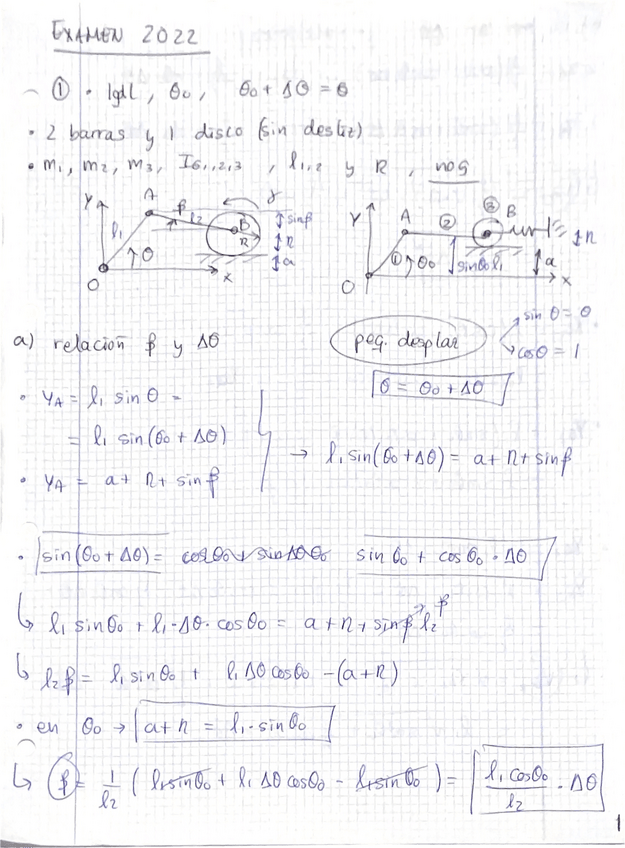 EXAMEN 2022
① • 1gdl, θ₀, θ₀ + Δθ = θ
• 2 barras y 1 disco (sin desliz)
• m₁, m₂, m₃, I_G₁,₂,₃, l₁,₂ y R, no g
Y A β l₂ γ B R sinβ R a l₁ θ O X
Y A ② ③ B R ① θ₀ sinθ₀ l₁ a O X
a) relación β y Δθ
peq. desplaz
sin θ = θ
cosθ = 1
θ = θ₀ + Δθ
• Y_A = l₁ sin θ =
= l₁ sin(θ₀ + Δθ)
→ l₁ sin(θ₀ + Δθ) = a + R + sinβ
• Y_A = a + R + sinβ
• sin(θ₀ + Δθ) = sin θ₀ + cos θ₀ · Δθ
↳ l₁ sinθ₀ + l₁·Δθ·cosθ₀ = a + R + sinβ l₂ β
↳ l₂β = l₁ sinθ₀ + l₁ Δθ cosθ₀ - (a + R)
• en θ₀ → a + R = l₁·sinθ₀
↳ β = 1/l₂ (l₁ sinθ₀ + l₁ Δθ cosθ₀ - l₁ sinθ₀) = l₁ cosθ₀/l₂ · Δθ
1